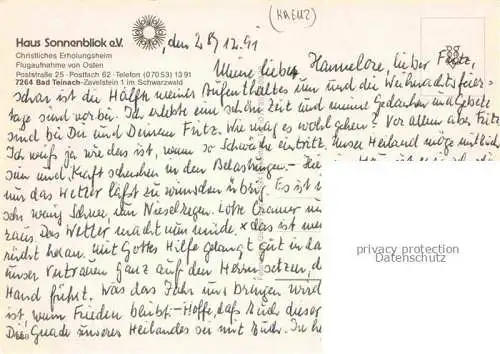 (KREUZ)
Haus Sonnenblick e.V.
Christliches Erholungsheim
Flugaufnahme von Osten
Poststraße 25 · Postfach 62 · Telefon (07053) 1391
7264 Bad Teinach-Zavelstein 1 im Schwarzwald
, den 28.12.91
Meine liebe Hannelore, lieber Fritz,
schon ist die Hälfte meines Aufenthaltes um und die Weihnachtsfeier-
tage sind vorbei. Ich erlebte eine schöne Zeit und meine Gedanken und Gebete
sind bei Dir und Deinem Fritz. Wie mag es wohl gehen? Vor allem aber Fritz
Ich weiß ja wie das ist, wenn so Schwäche eintritt. Unser Heiland möge mit
sein und Kraft schenken in den Belastungen. - Hie
nur das Wetter läßt zu wünschen übrig. Es ist
sehr wenig Schnee, nun Nieselregen. Lotte Cramer
raus. Das Wetter macht nun müde. x das ist
rückt heran. Mit Gottes Hilfe gelangt gut in da
unser Vertrauen ganz auf den Herrn setzen, d
Hand führt. Was das Jahr uns bringen wird
ist, wenn Frieden bleibt. - Hoffe, daß Euch dieser
Die Gnade unseres Heilandes sei mit Euch.
privacy protection
Datenschutz